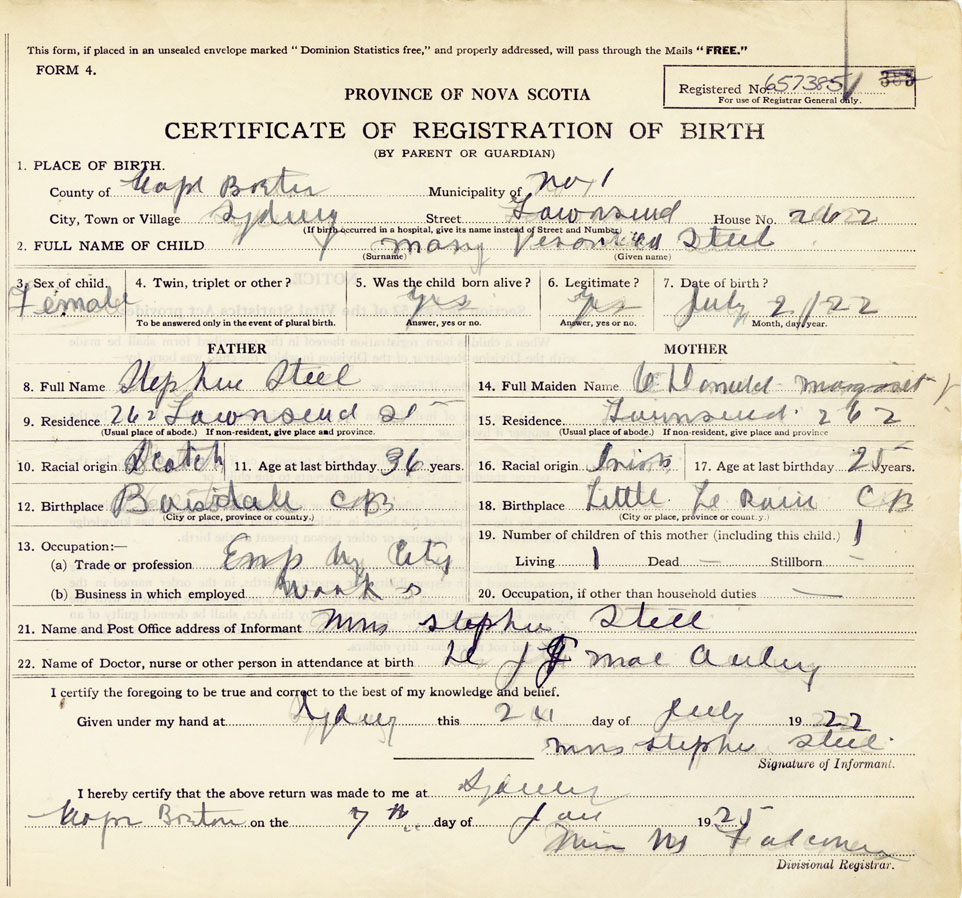 This form, if placed in an unsealed envelope marked "Dominion Statistics free," and properly addressed, will pass through the Mails "FREE."
FORM 4.
Registered No. 657385 353
For use of Registrar General only.
PROVINCE OF NOVA SCOTIA
CERTIFICATE OF REGISTRATION OF BIRTH
(BY PARENT OR GUARDIAN)
1. PLACE OF BIRTH.
County of Cape Breton Municipality of No 1
City, Town or Village Sydney Street Townsend House No. 262
(If birth occurred in a hospital, give its name instead of Street and Number)
2. FULL NAME OF CHILD Mary Steel
(Surname) (Given name)
3. Sex of child. 4. Twin, triplet or other? 5. Was the child born alive? 6. Legitimate? 7. Date of birth?
Female yes yes July 2/22
To be answered only in the event of plural birth. Answer, yes or no. Answer, yes or no. Month, day, year.
FATHER MOTHER
8. Full Name Stephen Steel 14. Full Maiden Name Margaret
9. Residence 262 Townsend St 15. Residence Townsend 262
(Usual place of abode.) If non-resident, give place and province. (Usual place of abode.) If non-resident, give place and province
10. Racial origin Scotch 11. Age at last birthday 36 years. 16. Racial origin Irish 17. Age at last birthday 25 years.
12. Birthplace Boisdale CB 18. Birthplace Little CB
(City or place, province or country.) (City or place, province or country.)
13. Occupation:— 19. Number of children of this mother (including this child.) 1
(a) Trade or profession Emp by City Living 1 Dead — Stillborn —
(b) Business in which employed Works 20. Occupation, if other than household duties —
21. Name and Post Office address of Informant Mrs Stephen Steel
22. Name of Doctor, nurse or other person in attendance at birth J
I certify the foregoing to be true and correct to the best of my knowledge and belief.
Given under my hand at Sydney this day of July 1922
Mrs Stephen Steel
Signature of Informant.
I hereby certify that the above return was made to me at Sydney
Cape Breton on the 7th day of Jan 1925
Falconer
Divisional Registrar.